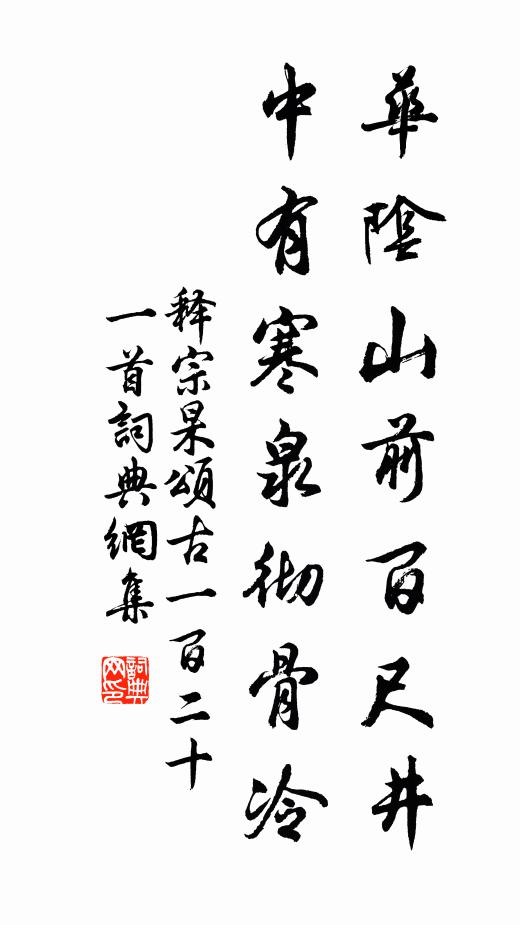 華陰山前百尺井
中有寒泉彻骨冷
释宗杲頌古一百二十
一首詞典網集
詞典网印